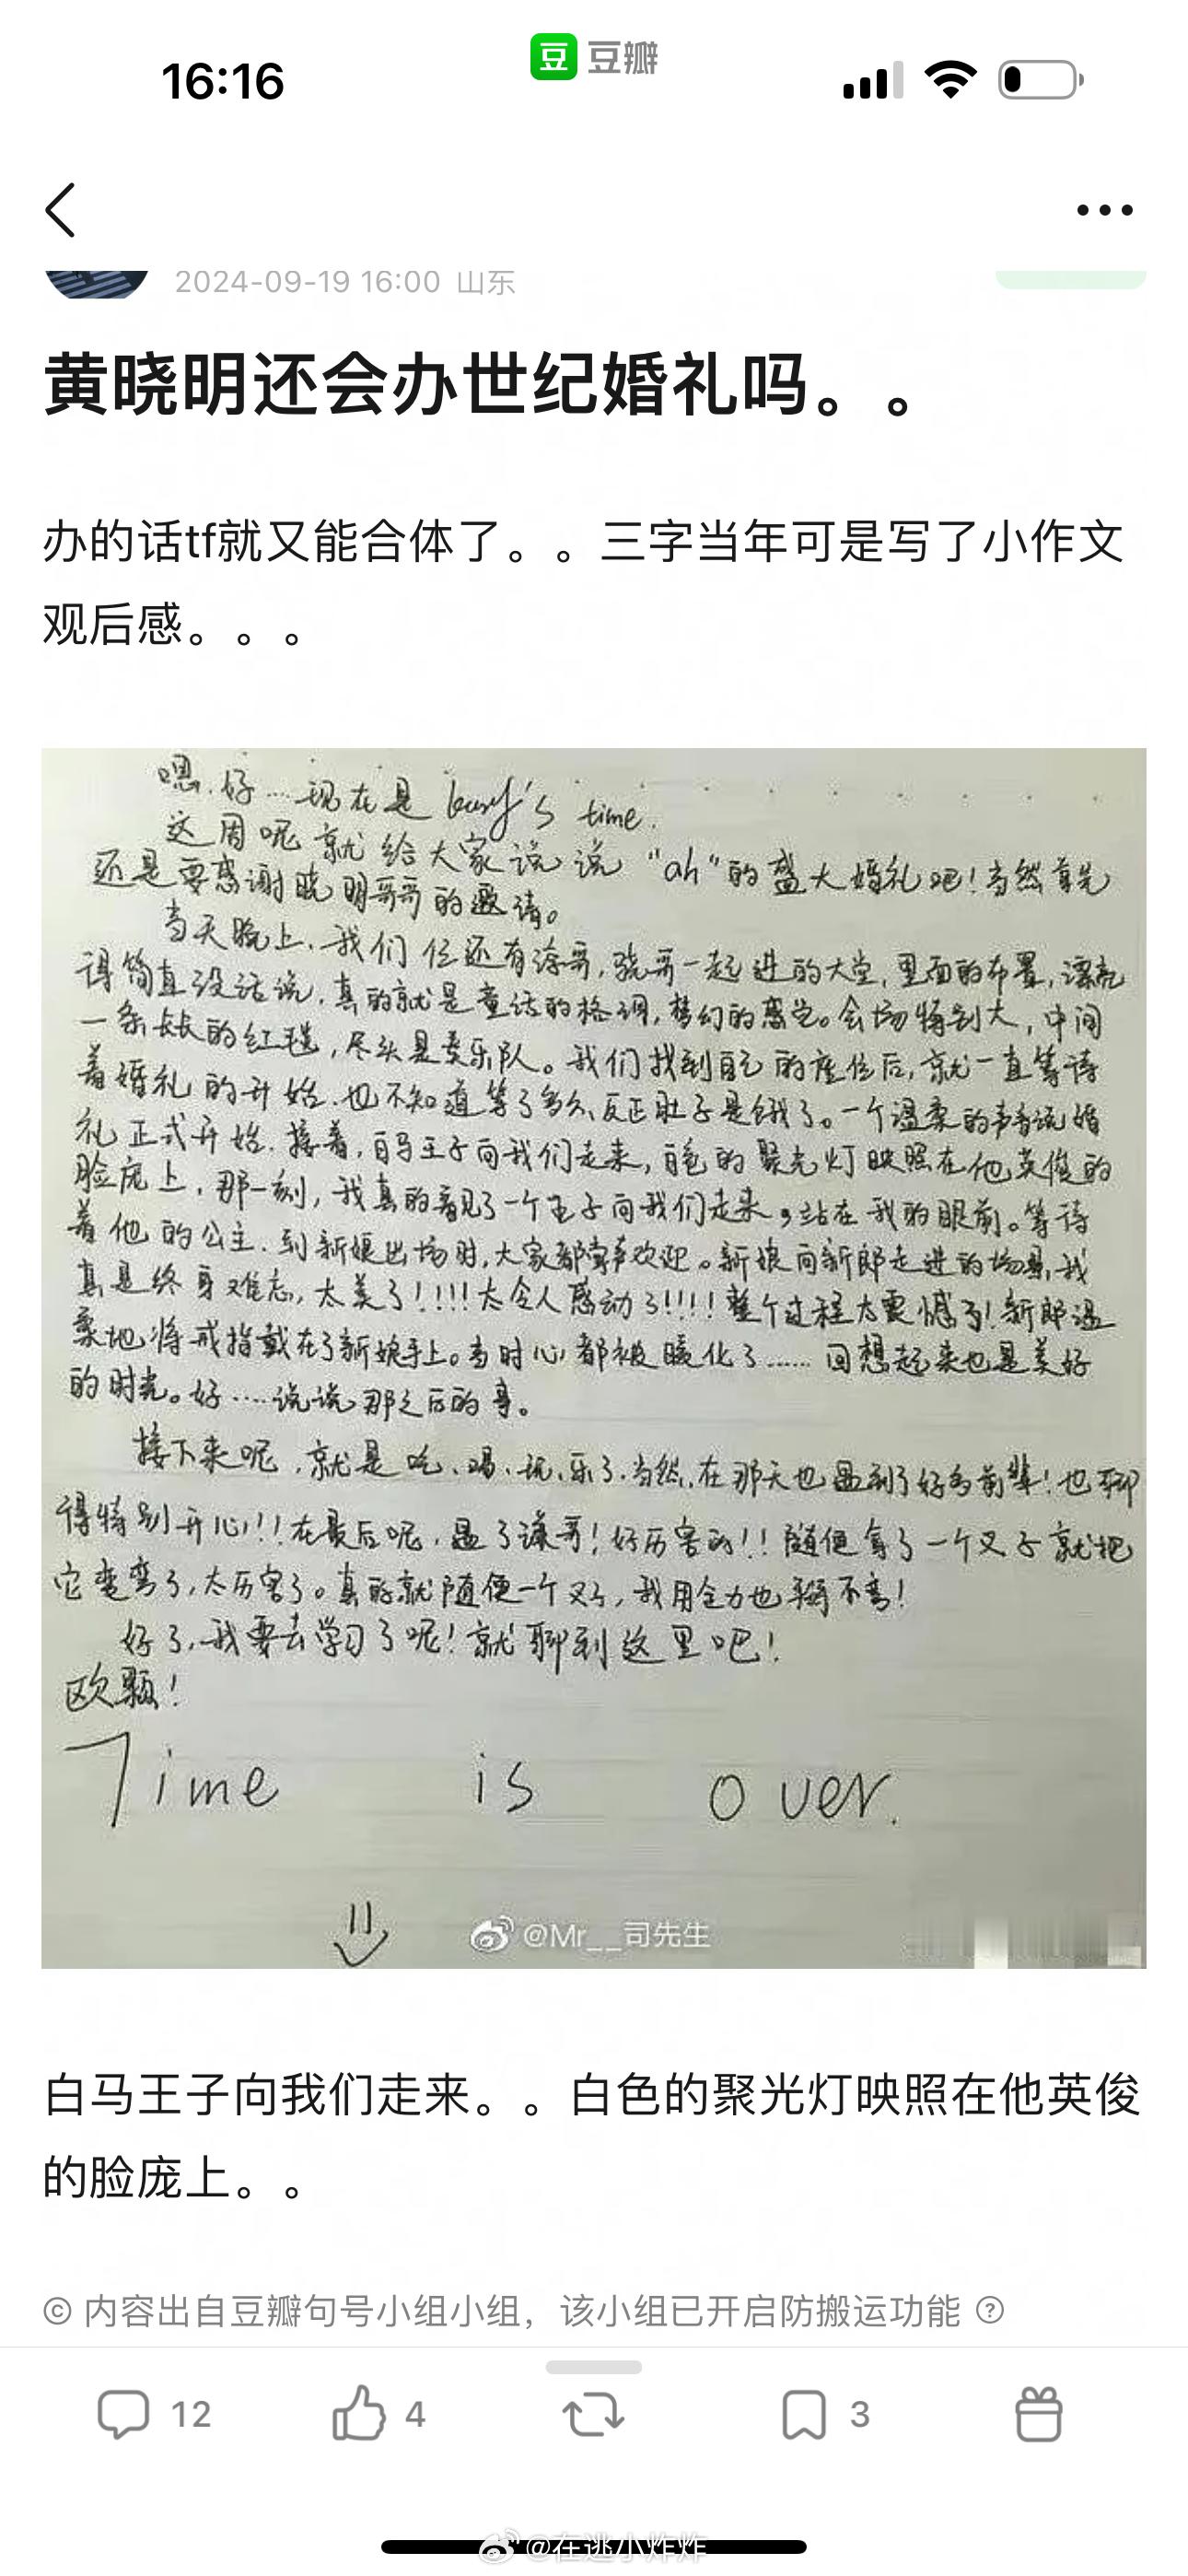 16:16
豆 豆瓣
2024-09-19 16:00 山东
黄晓明还会办世纪婚礼吗。。
办的话tf就又能合体了。。三字当年可是写了小作文
观后感。。。
嗯.好……现在是 's time.
这周呢就给大家说说“ah”的盛大婚礼吧！当然首先
还是要感谢晓明哥哥的邀请。
当天晚上.我们 还有涂哥,骁哥一起进的大堂,里面的布置,漂亮
得简直没话说.真的就是童话的格调,梦幻的感觉。会场特别大,中间
一条长长的红毯,尽头是奏乐队。我们找到自己的座位后,就一直等待
着婚礼的开始.也不知道等了多久,反正肚子是饿了。一个温柔的声音说婚
礼正式开始.接着,白马王子向我们走来,白色的聚光灯映照在他英俊的
脸庞上,那一刻,我真的看见了一个王子向我们走来,站在我的眼前。等待
着他的公主.到新娘出场时,大家都掌声欢迎。新娘向新郎走进的场景,我
真是终身难忘,太美了!!!!太令人感动了!!!!整个过程太震憾了!新郎温
柔地将戒指戴在了新娘手上。当时心都被暖化了……回想起来也是美好
的时光。好……说说那之后的事。
接下来呢,就是吃、喝、玩、乐了.当然,在那天也 到了好多前辈!也聊
得特别开心!!!在最后呢, 了谦哥!好厉害的!!随便拿了一个叉子就把
它变弯了,太厉害了。真的就随便一个叉子,我用全力也掰不弯!
好了,我要去学习了呢!就聊到这里吧!
欧 !
Time is over.
@Mr__司先生
白马王子向我们走来。。白色的聚光灯映照在他英俊
的脸庞上。。
© 内容出自豆瓣句号小组小组，该小组已开启防搬运功能 ?
12 4 3
@在逃小炸炸